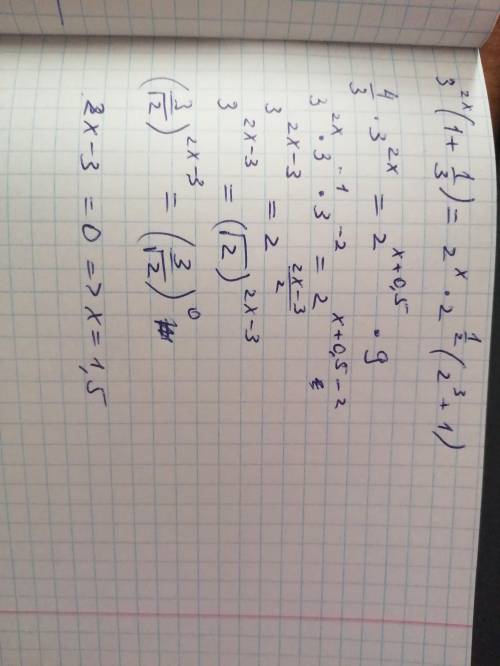 3^{2x}(1+\frac{1}{3}) = 2^x · 2^{\frac{1}{2}}(2^3+1)
\frac{4}{3} · 3^{2x} = 2^{x+0,5} · 9
3^{2x} · 3^{-1} · 3^{-2} = 2^{x+0,5-2}
3^{2x-3} = 2^{\frac{2x-3}{2}}
3^{2x-3} = (\sqrt{2})^{2x-3}
(\frac{3}{\sqrt{2}})^{2x-3} = (\frac{3}{\sqrt{2}})^0
2x-3 = 0 => x = 1,5